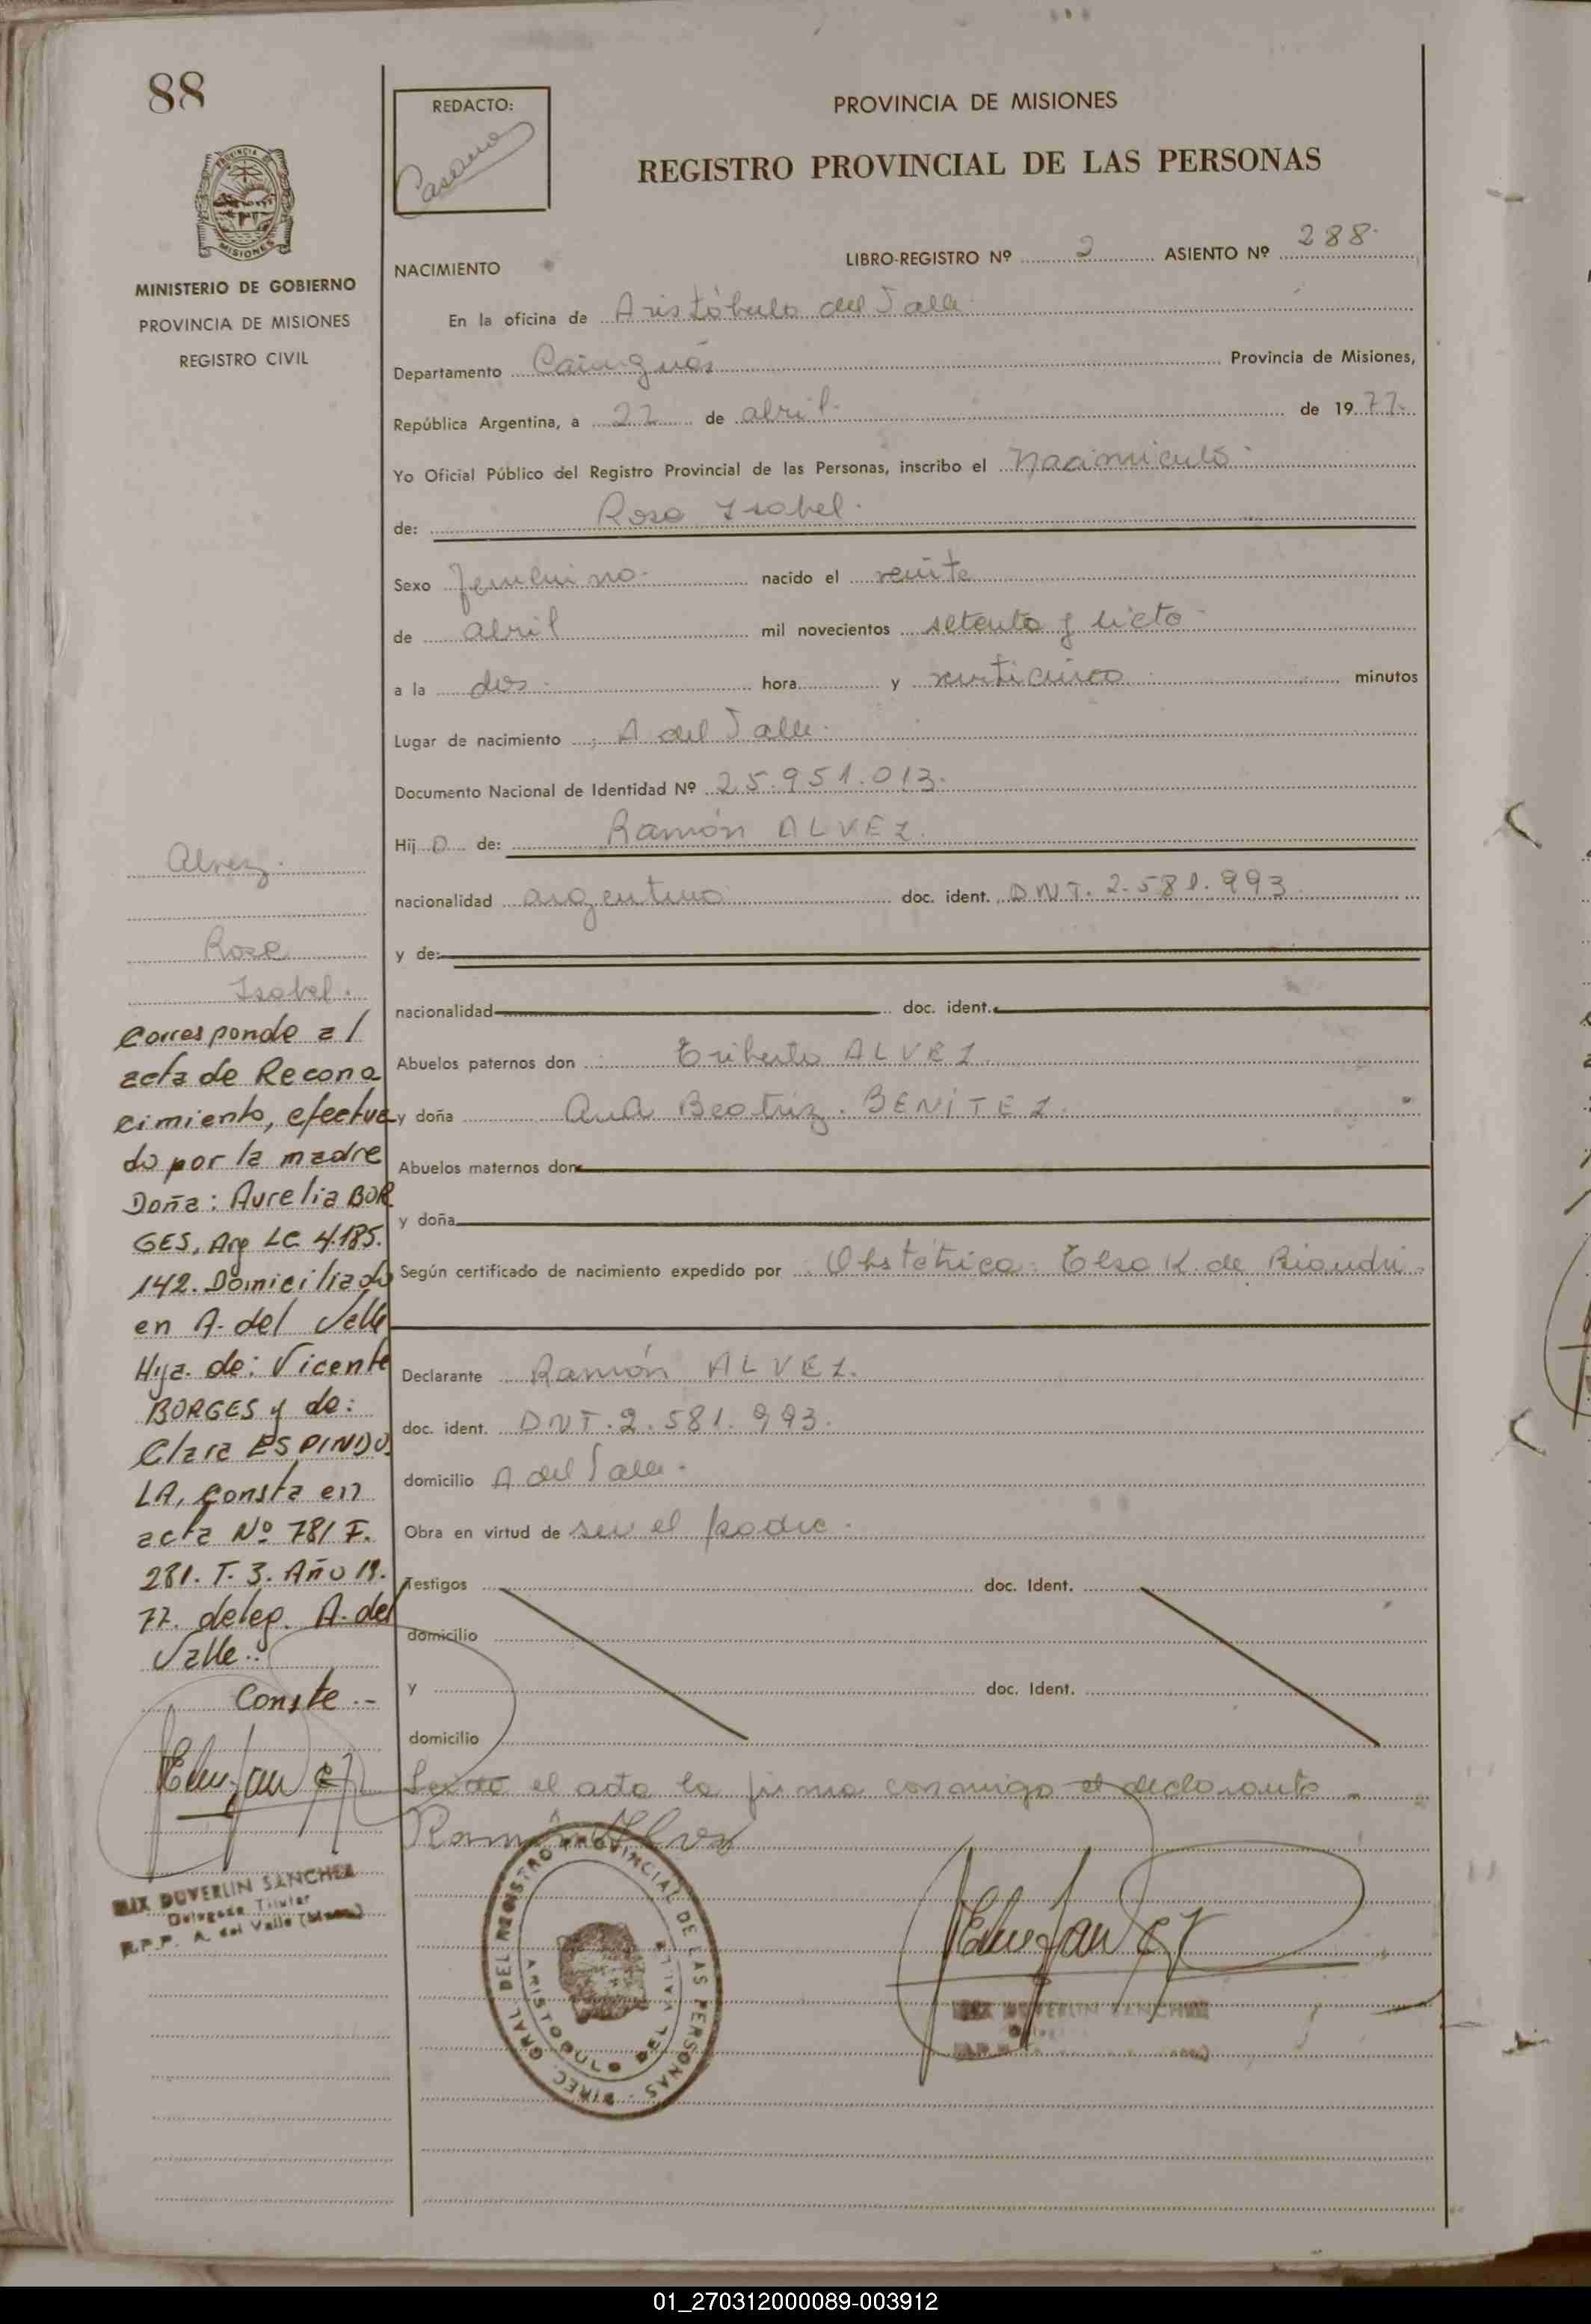 88
REDACTO:
PROVINCIA DE MISIONES
REGISTRO PROVINCIAL DE LAS PERSONAS
MINISTERIO DE GOBIERNO
PROVINCIA DE MISIONES
REGISTRO CIVIL
NACIMIENTO
LIBRO-REGISTRO Nº 2 ASIENTO Nº 288
En la oficina de Aristóbulo del Valle
Departamento Cainguás Provincia de Misiones,
República Argentina, a 22 de abril de 1977
Yo Oficial Público del Registro Provincial de las Personas, inscribo el Nacimiento
de: Rosa Isabel
Sexo femenino nacido el veinte
de abril mil novecientos setenta y siete
a la dos hora y veinticinco minutos
Lugar de nacimiento A del Valle
Documento Nacional de Identidad Nº 25.951.013
Hij a de: Ramón ALVEZ
nacionalidad argentino doc. ident. DNI. 2.581.993
y de:
nacionalidad doc. ident.
Abuelos paternos don Eriberto ALVEZ
y doña Ana Beatriz BENITEZ
Abuelos maternos don
y doña
Según certificado de nacimiento expedido por Obstétrica: Elsa K. de
Declarante Ramón ALVEZ
doc. ident. DNI. 2.581.993
domicilio A del Valle
Obra en virtud de ser el padre
Testigos doc. Ident.
domicilio
y doc. Ident.
domicilio
Leída el acta la firma conmigo el declarante
Ramón Alvez
Alvez
Rosa
Isabel.
Corresponde al
acta de Recono
cimiento, efectua
do por la madre
Doña: Aurelia BOR
GES, Arg LC 4.185.
142. Domiciliada
en A. del Valle
Hija de: Vicente
BORGES y de:
Clara ESPINDO
LA, consta en
acta Nº 781 F.
281. T. 3. Año 19.
77. deleg. A. del
Valle.-
Conste.-
DUVERLIN SANCHEZ
Delegado Titular
R.P.P. A. del Valle (Mnes.)
DIREC. GRAL. DEL REGISTRO PROVINCIAL DE LAS PERSONAS
ARISTOBULO DEL VALLE
DUVERLIN SANCHEZ
01_270312000089-003912